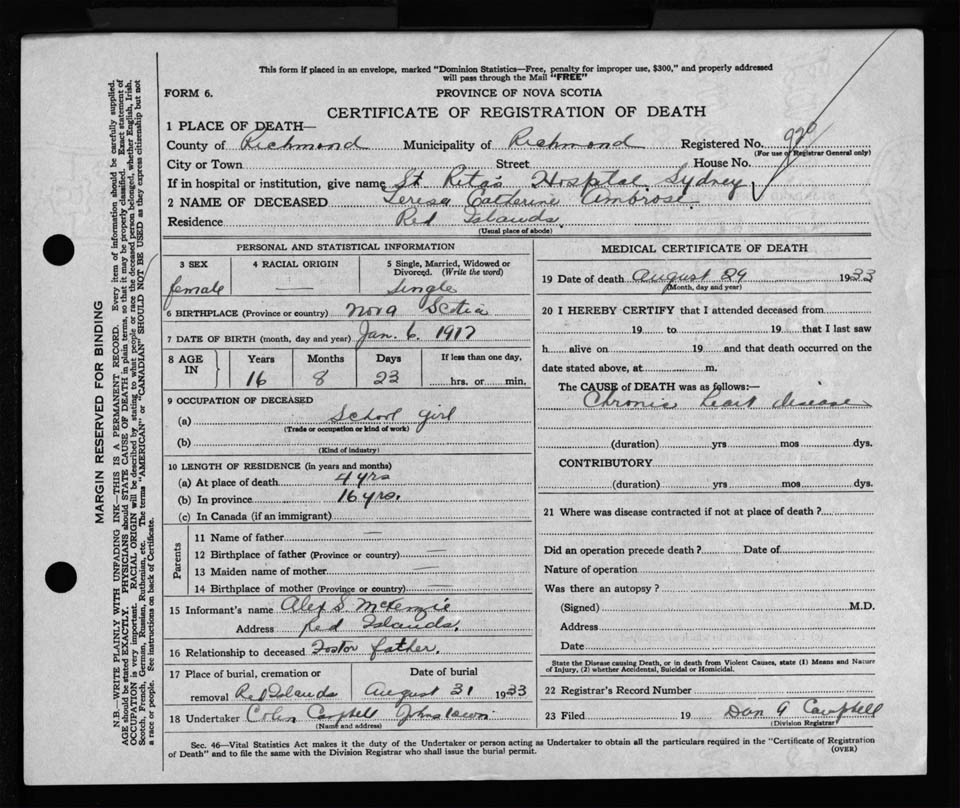 This form if placed in an envelope, marked "Dominion Statistics—Free, penalty for improper use, $300," and properly addressed
will pass through the Mail "FREE"
FORM 6. PROVINCE OF NOVA SCOTIA
CERTIFICATE OF REGISTRATION OF DEATH
1 PLACE OF DEATH—
County of Richmond Municipality of Richmond Registered No. 920
(For use of Registrar General only)
City or Town Street House No.
If in hospital or institution, give name St Rita's Hospital. Sydney
2 NAME OF DECEASED Teresa Catherine Ambrose.
Residence Red Islands.
(Usual place of abode)
PERSONAL AND STATISTICAL INFORMATION
3 SEX 4 RACIAL ORIGIN 5 Single, Married, Widowed or
Divorced. (Write the word)
female — Single
6 BIRTHPLACE (Province or country) Nova Scotia
7 DATE OF BIRTH (month, day and year) Jan. 6. 1917
8 AGE IN Years Months Days If less than one day,
16 8 23 hrs. or min.
9 OCCUPATION OF DECEASED
(a) School girl
(Trade or occupation or kind of work)
(b)
(Kind of industry)
10 LENGTH OF RESIDENCE (in years and months)
(a) At place of death 4 yrs
(b) In province 16 yrs.
(c) In Canada (if an immigrant)
Parents
11 Name of father —
12 Birthplace of father (Province or country) —
13 Maiden name of mother —
14 Birthplace of mother (Province or country) —
15 Informant's name Alex S. McKenzie
Address Red Islands.
16 Relationship to deceased Foster father.
17 Place of burial, cremation or Date of burial
removal Red Islands August 31 1933
18 Undertaker Colin Campbell Johnstown
(Name and address)
MEDICAL CERTIFICATE OF DEATH
19 Date of death August 29 1933
(Month, day and year)
20 I HEREBY CERTIFY that I attended deceased from
19 to 19 that I last saw
h alive on 19 and that death occurred on the
date stated above, at m.
The CAUSE of DEATH was as follows:—
Chronic heart disease
(duration) yrs mos dys.
CONTRIBUTORY
(duration) yrs mos dys.
21 Where was disease contracted if not at place of death?
Did an operation precede death? Date of
Nature of operation
Was there an autopsy?
(Signed) M.D.
Address
Date
State the Disease causing Death, or in death from Violent Causes, state (1) Means and Nature
of Injury, (2) whether Accidental, Suicidal or Homicidal.
22 Registrar's Record Number
23 Filed 19 Dan G Campbell
(Division Registrar)
Sec. 46—Vital Statistics Act makes it the duty of the Undertaker or person acting as Undertaker to obtain all the particulars required in the "Certificate of Registration
of Death" and to file the same with the Division Registrar who shall issue the burial permit. (OVER)
MARGIN RESERVED FOR BINDING
N.B.—WRITE PLAINLY WITH UNFADING INK—THIS IS A PERMANENT RECORD. Every item of information should be carefully supplied.
AGE should be stated EXACTLY. PHYSICIANS should STATE CAUSE OF DEATH in plain terms, so that it may be properly classified. Exact statement of
OCCUPATION is very important. RACIAL ORIGIN will be described by stating to what people or race the deceased person belonged, whether English, Irish,
Scotch, French, German, Russian, Ruthenian, etc. The terms "AMERICAN" or "CANADIAN" SHOULD NOT BE USED as they express citizenship but not
a race or people. See instructions on back of Certificate.